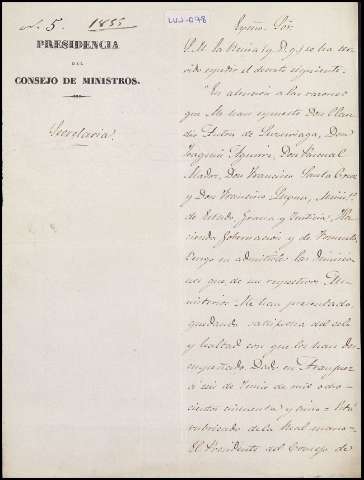 N. 5. 1855
LUJ-078
PRESIDENCIA
DEL
CONSEJO DE MINISTROS.
Secretaria.
Excmo. Sor.
S. M. la Reina (q. D. g.) se ha ser-
vido espedir el decreto siguiente.
"En atencion a las razones
que Me han espuesto Don Clau-
dio Anton de Luzuriaga, Don
Joaquin Aguirre, Don Pascual
Madoz, Don Francisco Santa Cruz
y Don Francisco Lujan, Minist.s
de Estado, Gracia y Justicia, Ha-
cienda, Gobernacion y de Fomento,
Vengo en admitirles las dimisio-
nes que de sus respectivos Mi-
nisterios Me han presentado
quedando satisfecha del celo
y lealtad con que los han des-
empeñado. Dado en Aranjuez
á seis de Junio de mil ocho-
cientos cincuenta y cinco = Está
rubricado de la Real mano =
El Presidente del Consejo de